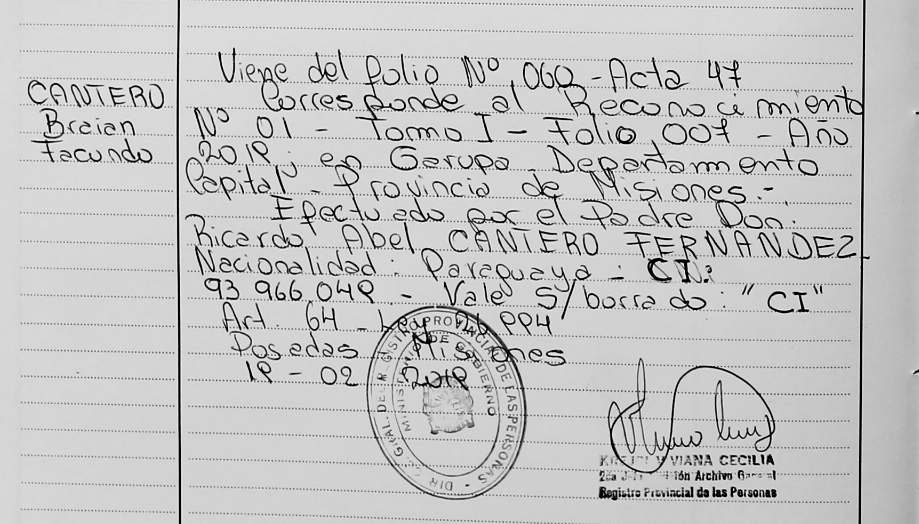 CANTERO
Braian
Facundo
Viene del folio Nº 060 - Acta 47
Corresponde al Reconocimiento
Nº 01 - Tomo I - Folio 007 - Año
2019, en Garupa Departamento
Capital - Provincia de Misiones.-
Efectuado por el Padre Don:
Ricardo Abel CANTERO FERNANDEZ
Nacionalidad: Paraguaya - CI:
93 966 049 - Vale S/borrado: "CI"
Art. 64 - Ley 26 994
Posadas Misiones
19 - 02 2019
DIR. GRAL. DEL REGISTRO PROVINCIAL DE LAS PERSONAS
MINISTERIO DE GOBIERNO
VIVIANA CECILIA
Archivo General
Registro Provincial de las Personas